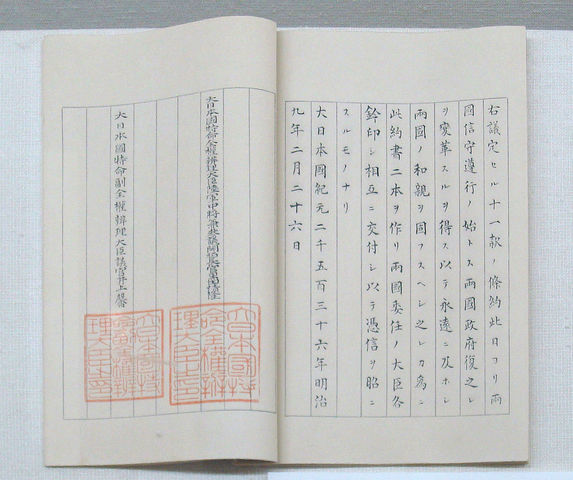 右議定セル十一款ノ條約此日ヨリ兩
國信守遵行ノ始トス兩國政府復之レ
ヲ變革スルヲ得ス以テ永遠ニ及ホシ
兩國ノ和親ヲ固フスヘシ之レカ為ニ
此約書二本ヲ作リ兩國委任ノ大臣各
鈐印シ相互ニ交付シ以テ憑信ヲ昭ニ
スルモノナリ
大日本國紀元二千五百三十六年明治
九年二月二十六日
大日本國特命全權辨理大臣陸軍中將兼參議開拓長官黑田清隆
大日本國特命副全權辨理大臣議官井上馨